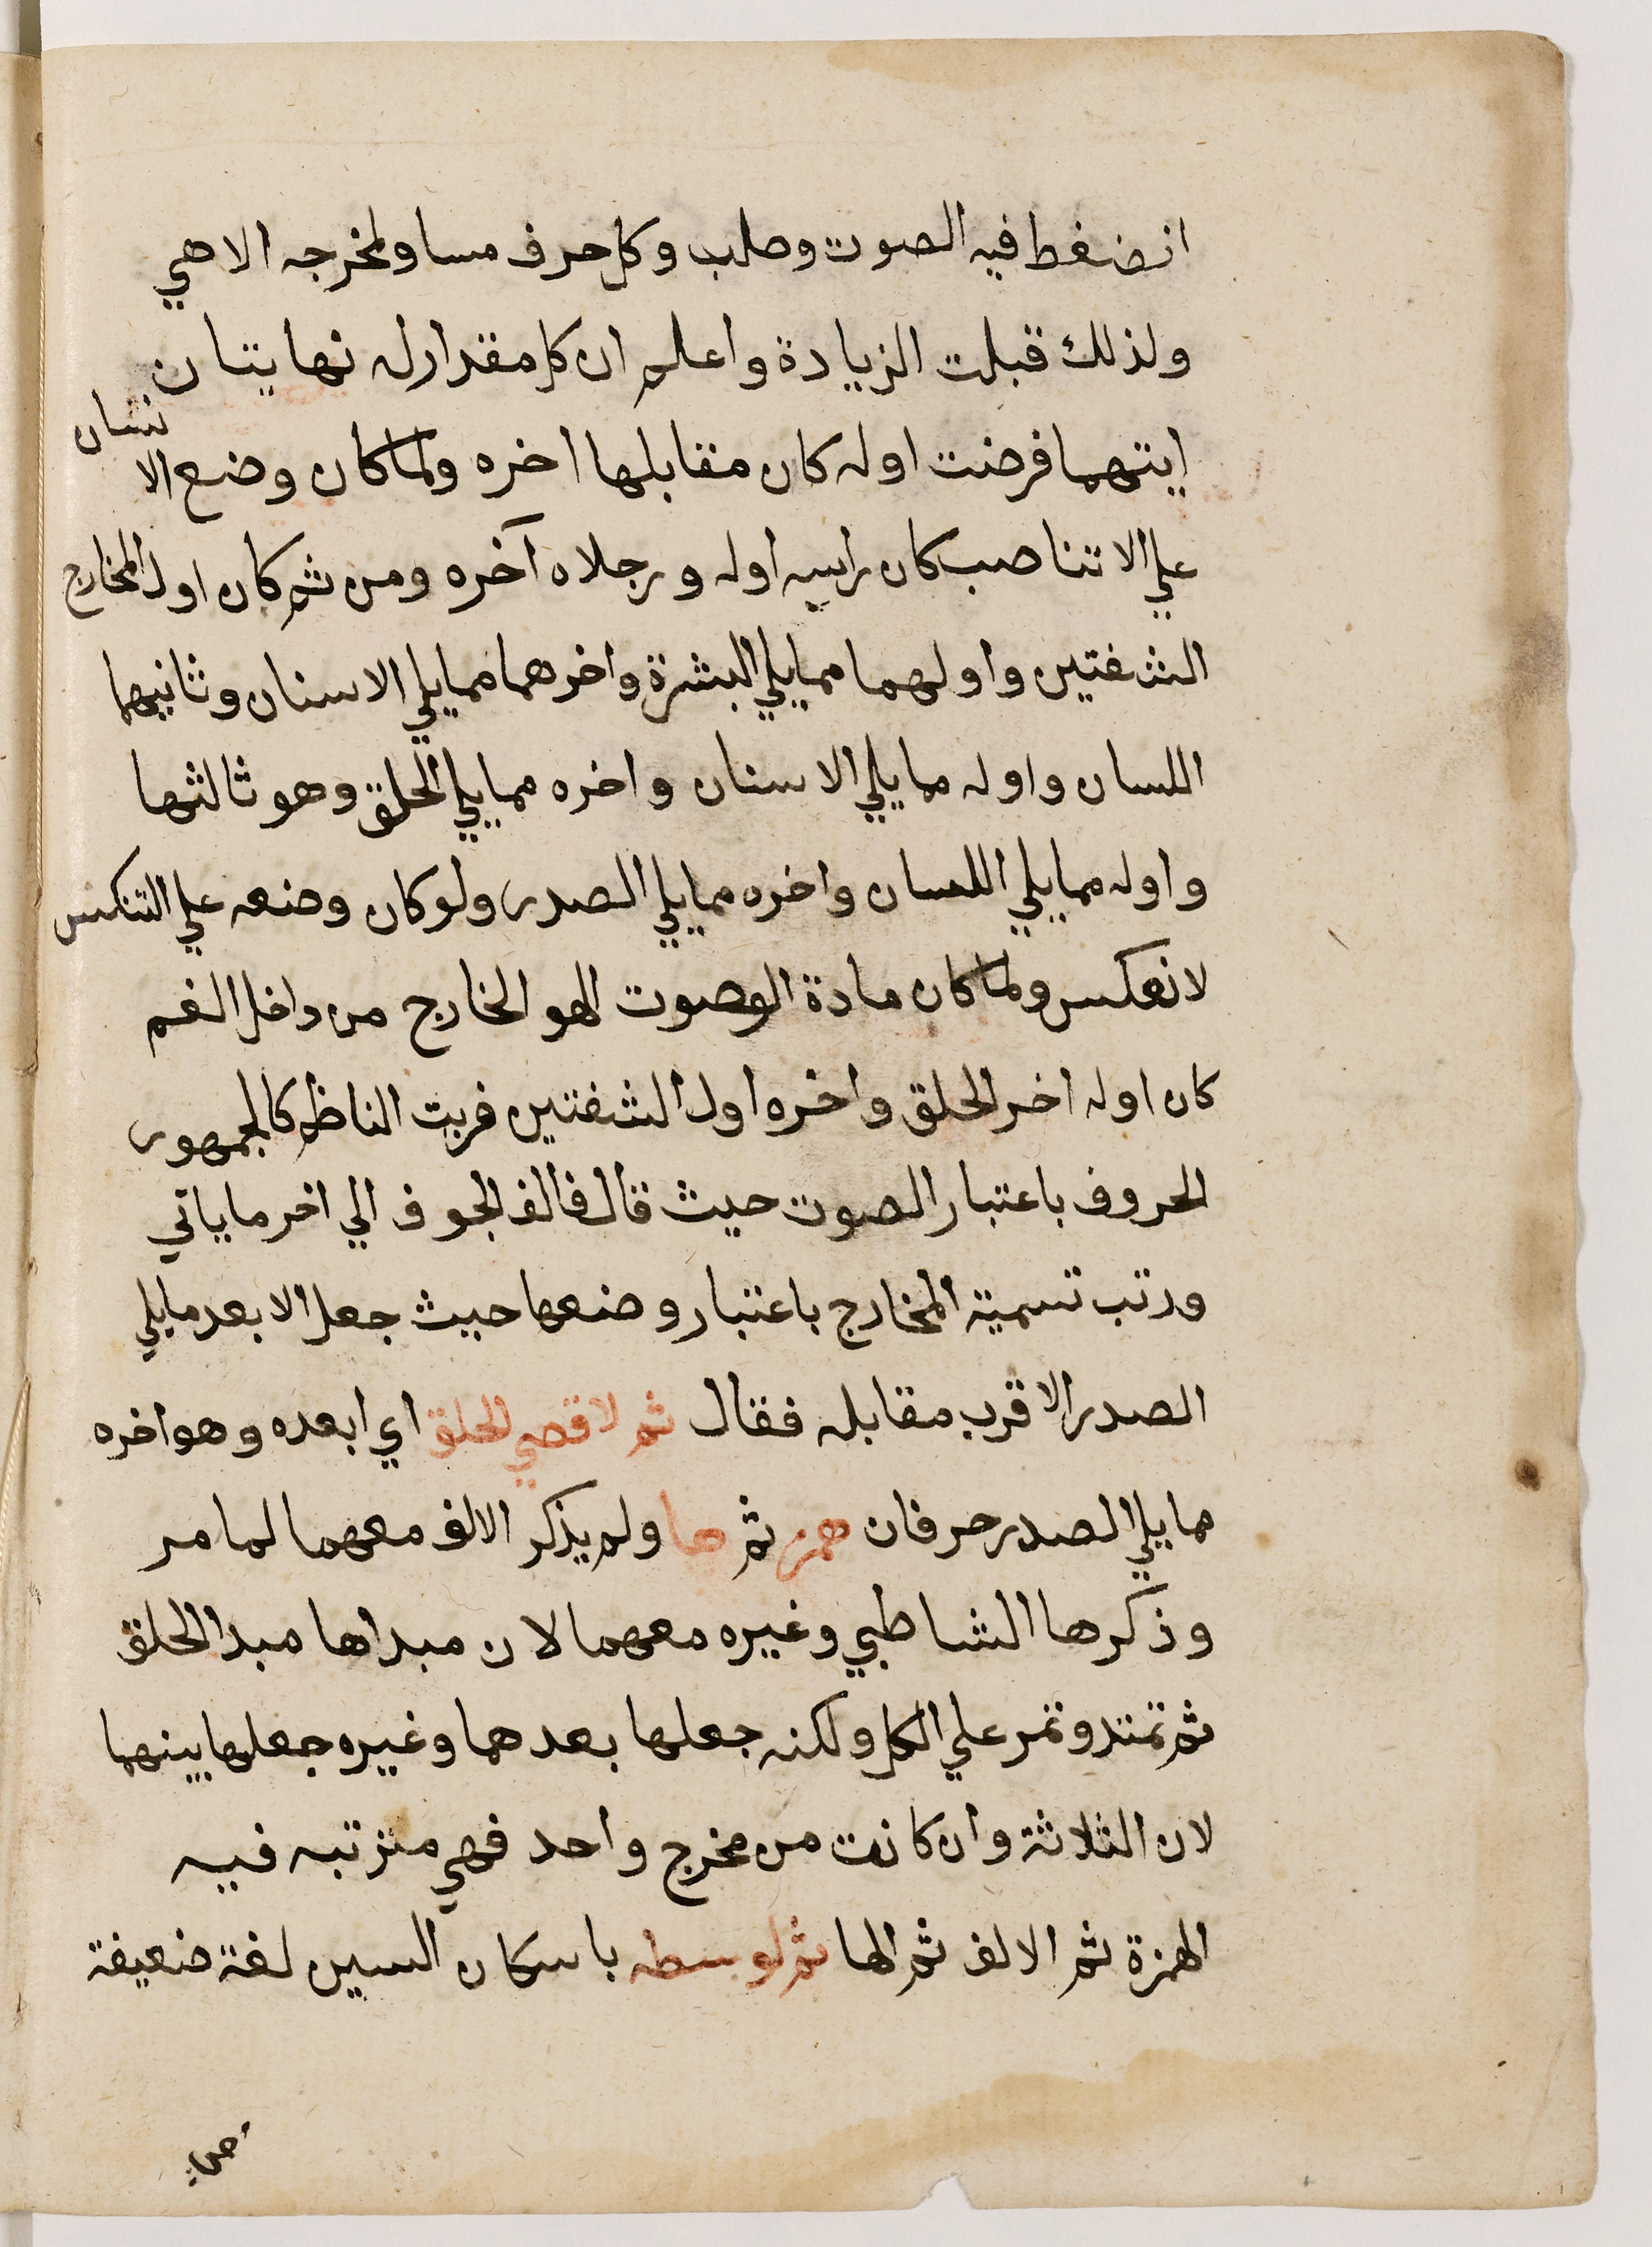 انضغط فيه الصوت وصلب وكل حرف مساو لمخرجه الا هي
ولذلك قبلت الزيادة واعلم ان كل مقدار له نهايتان
ايتهما فرضت اوله كان مقابلها اخره ولما كان وضع الا
نسان
علي الانتاصب كان راسه اوله ورجلاه آخره ومن ثم كان اول المخارج
الشفتين واولهما ممايلي البشرة واخرهما ممايلي الاسنان وثانيهما
اللسان واوله مما يلي الاسنان واخره ممايلي الحلق وهو ثالثها
واوله ممايلي اللسان واخره ممايلي الصدر ولو كان وضعه علي التنكس
لانعكس ولما كان مادة الصوت الهو الخارج من داخل الفم
كان اوله اخر الحلق واخره اول الشفتين فرتب الناظم كالجمهور
الحروف باعتبار الصوت حيث قال فالف الجوف الي اخر ماياتي
ورتب تسمية المخارج باعتبار وضعها حيث جعل الابعد مايلي
الصدر والاقرب مقابله فقال ثم لاقصي الحلق اي ابعده وهو اخره
ممايلي الصدر حرفان همز ثم ها ولم يذكر الالف معهما لما مر
وذكرها الشاطبي وغيره معهما لان مبداها مبدا الحلق
ثم تمتد وتمر علي الكل ولكنه جعلها بعدهما وغيره جعلها بينهما
لان الثلاثة وان كانت من مخرج واحد فهي مترتبه فيه
الهمزة ثم الالف ثم الها ثم لوسطه باسكان السين لغة ضعيفة